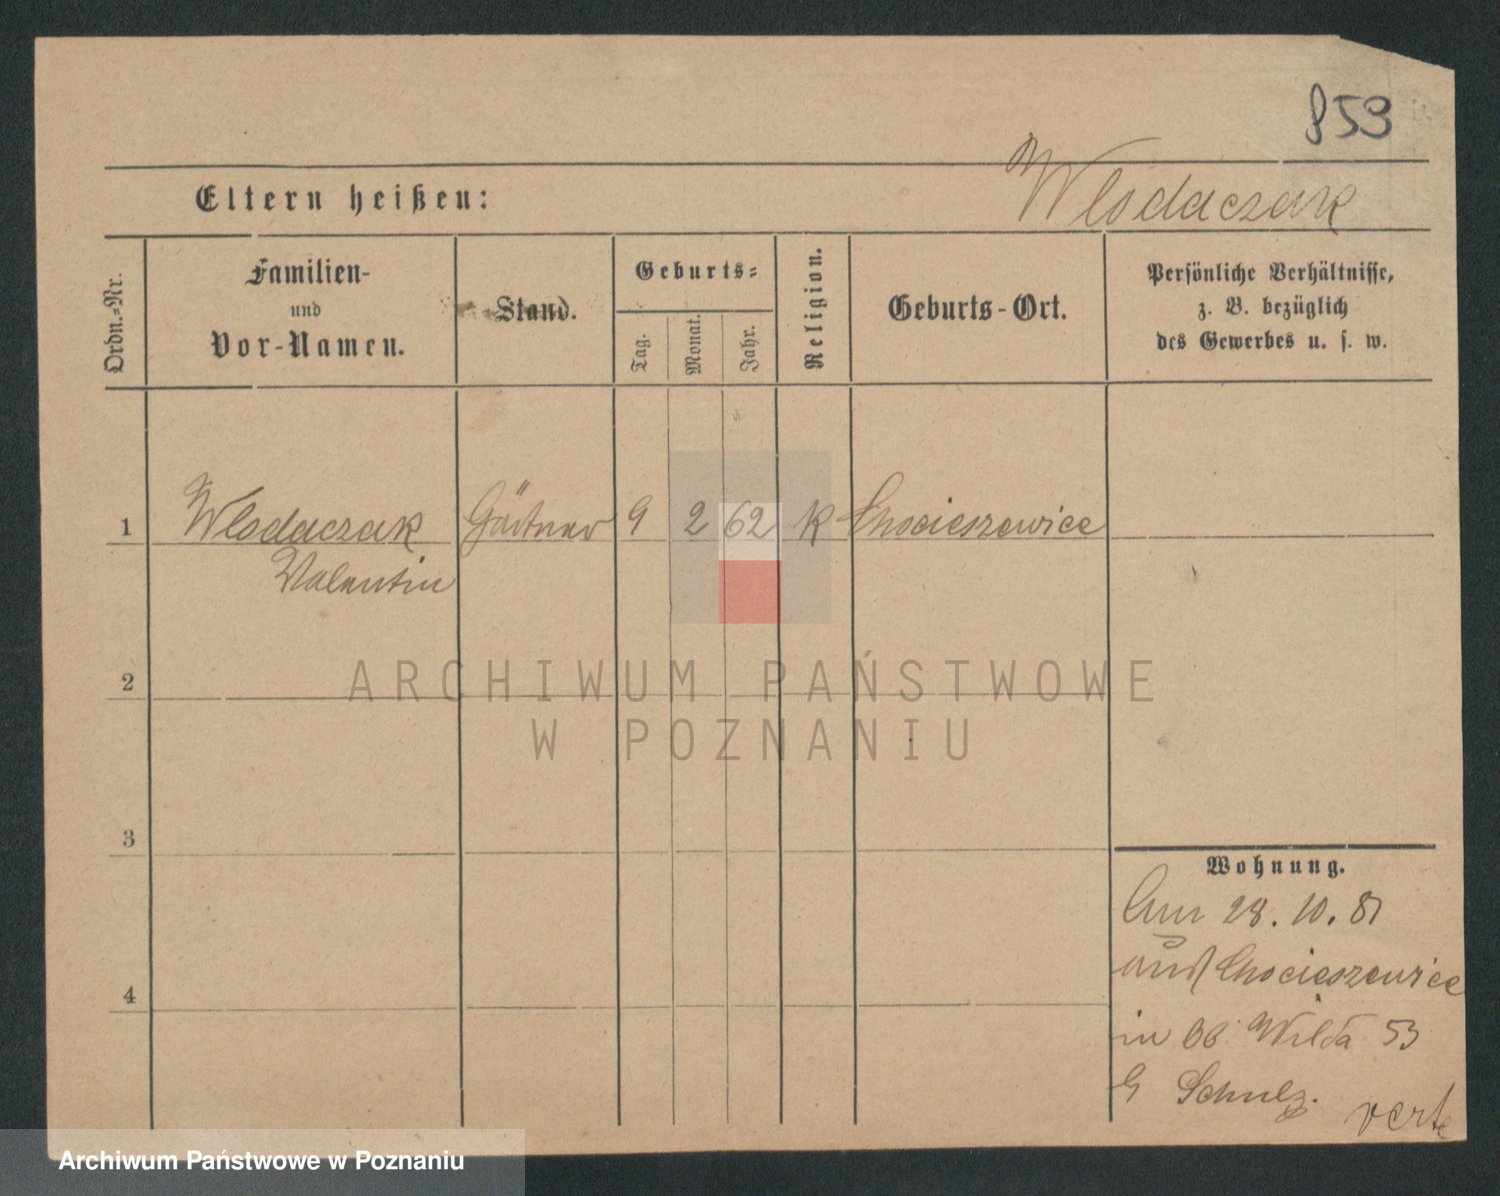 853
Eltern heißen:
Wlodaczak
Ordn.-Nr.
Familien-
und
Vor-Namen.
Stand.
Geburts-
Tag.
Monat.
Jahr.
Religion.
Geburts-Ort.
Persönliche Verhältnisse,
z. B. bezüglich
des Gewerbes u. s. w.
1 Wlodaczak Gärtner 9 2 62 K Chocieszewice
Valentin
2
3
4
Wohnung.
28. 10. 81
aus Chocieszewice
in Ob. Wilda 53
Schulz.
verte
ARCHIWUM PAŃSTWOWE
W POZNANIU
Archiwum Państwowe w Poznaniu